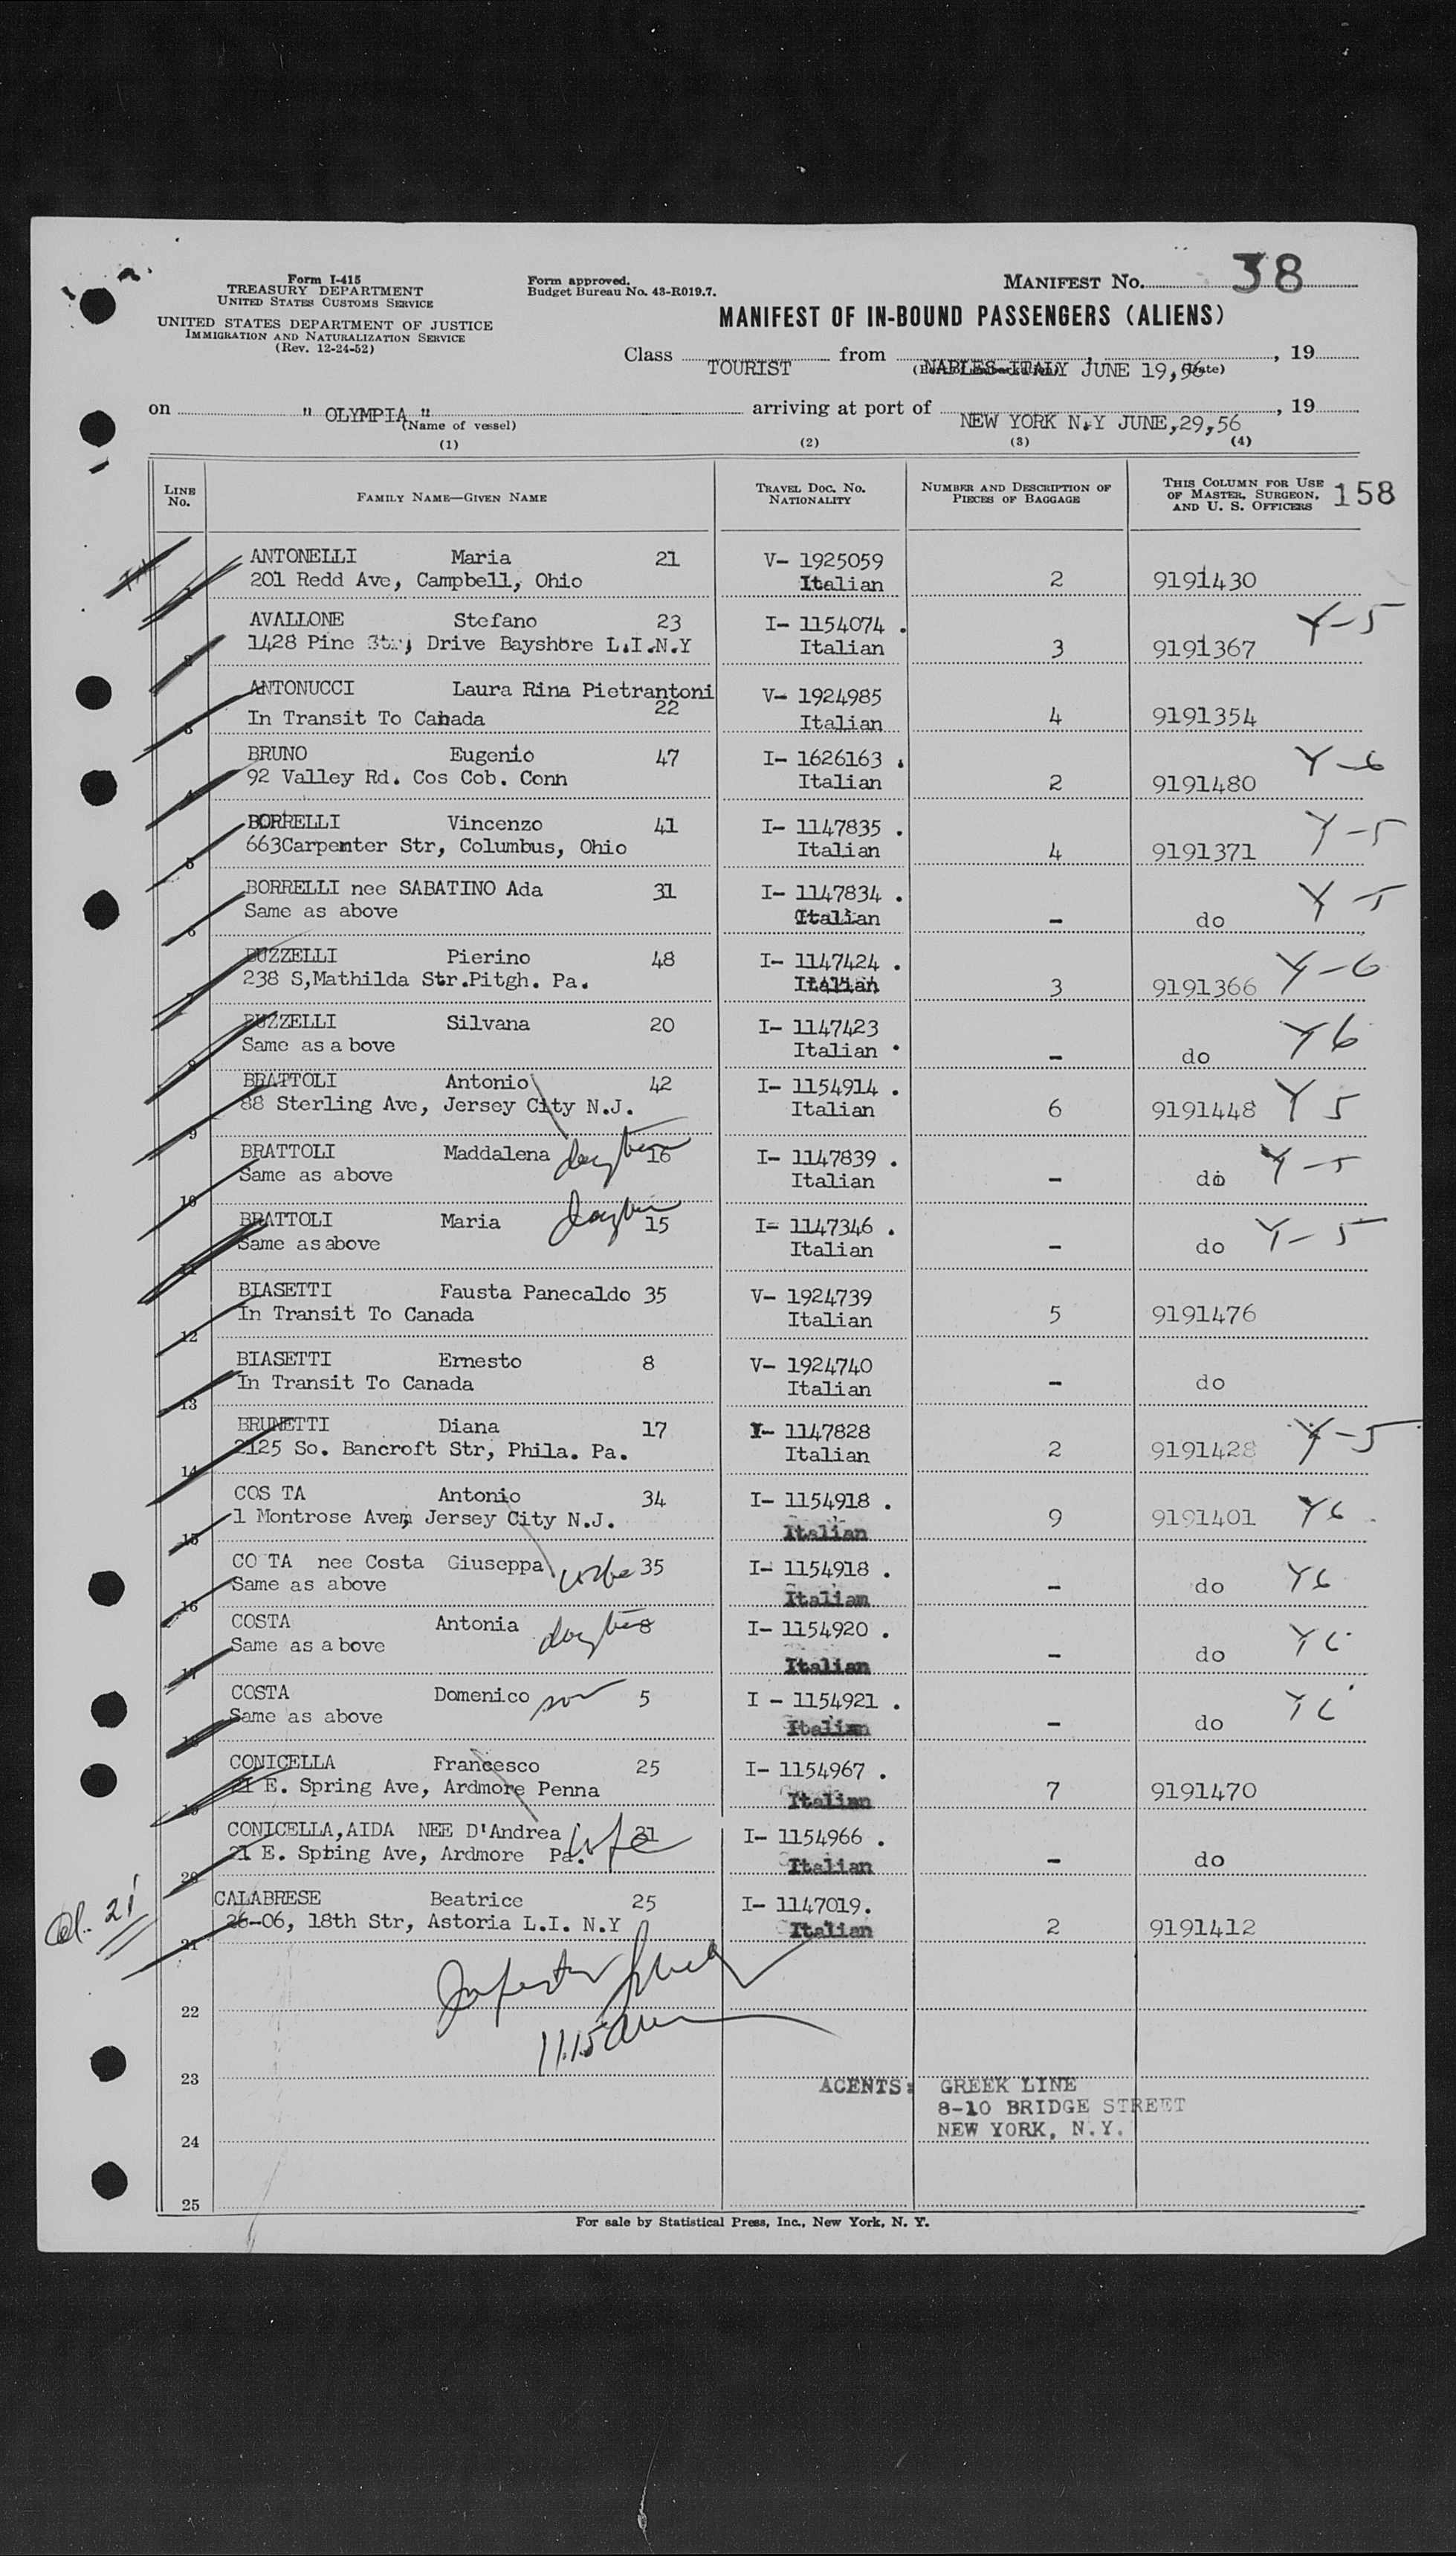 Form I-415
TREASURY DEPARTMENT
UNITED STATES CUSTOMS SERVICE
UNITED STATES DEPARTMENT OF JUSTICE
IMMIGRATION AND NATURALIZATION SERVICE
(Rev. 12-24-52)
Form approved.
Budget Bureau No. 43-R019.7.
MANIFEST No. 38
MANIFEST OF IN-BOUND PASSENGERS (ALIENS)
Class TOURIST from NAPLES ITALY JUNE 19,56 (Date), 19
on " OLYMPIA " arriving at port of NEW YORK N.Y JUNE,29,56, 19
(Name of vessel)
(1) (2) (3) (4)
LINE No. FAMILY NAME—GIVEN NAME TRAVEL DOC. No. NATIONALITY NUMBER AND DESCRIPTION OF PIECES OF BAGGAGE THIS COLUMN FOR USE OF MASTER, SURGEON, AND U. S. OFFICERS 158
ANTONELLI Maria 21 V- 1925059
1 201 Redd Ave, Campbell, Ohio Italian 2 9191430
AVALLONE Stefano 23 I- 1154074 . Y-5
2 1428 Pine Drive Bayshore L.I.N.Y Italian 3 9191367
ANTONUCCI Laura Rina Pietrantoni 22 V- 1924985
3 In Transit To Canada Italian 4 9191354
BRUNO Eugenio 47 I- 1626163 . Y-6
4 92 Valley Rd. Cos Cob. Conn Italian 2 9191480
BORRELLI Vincenzo 41 I- 1147835 . Y-5
5 663Carpenter Str, Columbus, Ohio Italian 4 9191371
BORRELLI nee SABATINO Ada 31 I- 1147834 . Y-5
6 Same as above Italian - do
BUZZELLI Pierino 48 I- 1147424 . Y-6
7 238 S,Mathilda Str.Pitgh. Pa. Italian 3 9191366
BUZZELLI Silvana 20 I- 1147423 Y6
8 Same as a bove Italian . - do
BRATTOLI Antonio 42 I- 1154914 . Y 5
9 88 Sterling Ave, Jersey City N.J. Italian 6 9191448
BRATTOLI Maddalena 16 I- 1147839 . Y-5
10 Same as above Italian - do
BRATTOLI Maria 15 I- 1147346 . Y-5
11 Same as above Italian - do
BIASETTI Fausta Panecaldo 35 V- 1924739
12 In Transit To Canada Italian 5 9191476
BIASETTI Ernesto 8 V- 1924740
13 In Transit To Canada Italian - do
BRUNETTI Diana 17 I- 1147828 Y-5
14 2125 So. Bancroft Str, Phila. Pa. Italian 2 9191428
COS TA Antonio 34 I- 1154918 . Y6
15 1 Montrose Ave, Jersey City N.J. Italian 9 9191401
CO TA nee Costa Giuseppa wife 35 I- 1154918 . Y6
16 Same as above Italian - do
COSTA Antonia 8 I- 1154920 . Y6
17 Same as a bove Italian - do
COSTA Domenico son 5 I - 1154921 . Y6
18 Same as above Italian - do
CONICELLA Francesco 25 I- 1154967 .
19 21 E. Spring Ave, Ardmore Penna Italian 7 9191470
CONICELLA,AIDA NEE D'Andrea wife 21 I- 1154966 .
20 21 E. Spting Ave, Ardmore Pa. Italian - do
CALABRESE Beatrice 25 I- 1147019.
21 26-06, 18th Str, Astoria L.I. N.Y Italian 2 9191412
22
11:15 am
23
AGENTS: GREEK LINE
8-10 BRIDGE STREET
NEW YORK, N.Y.
24
25
For sale by Statistical Press, Inc., New York, N. Y.